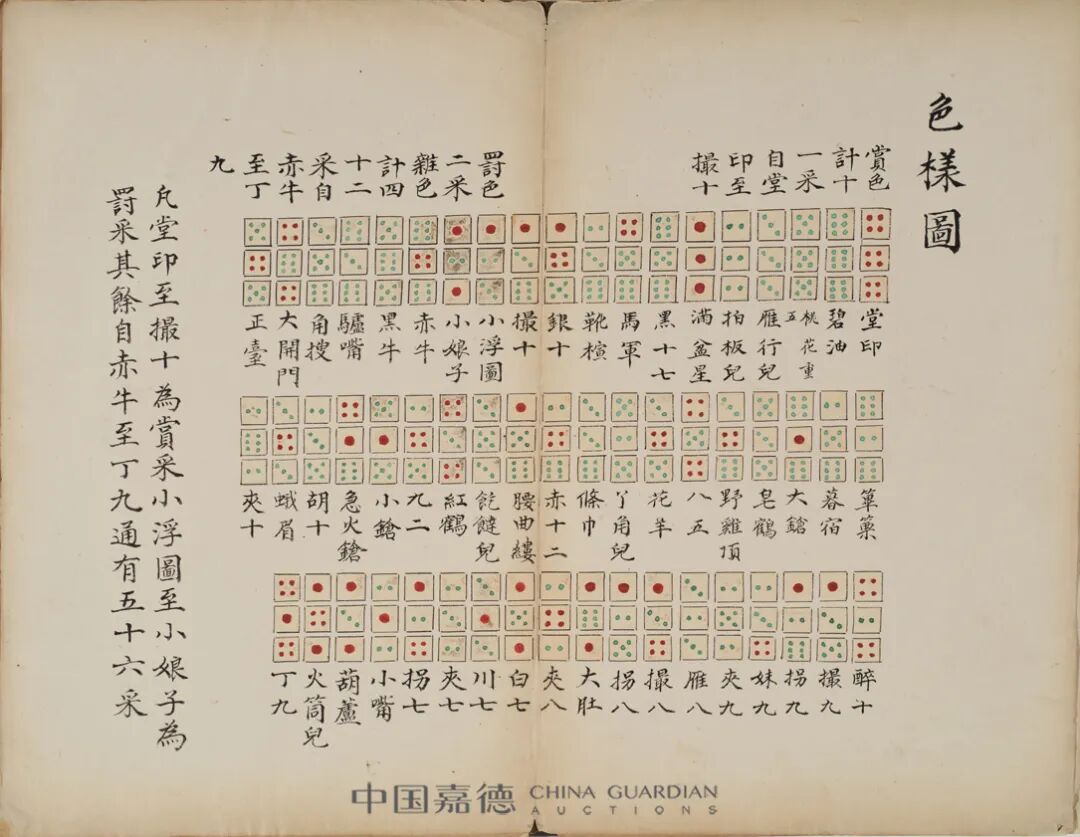 色樣圖
賞色
計十
一采
自堂
印至
撮十
罰色
二采
雜色
計四
十二
采自
赤牛
至丁
九
堂印
碧油
桃花重五
雁行兒
拍板兒
滿盆星
黑十七
馬軍
靴楦
銀十
撮十
小浮圖
小娘子
赤牛
黑牛
驢嘴
角搜
大開門
正臺
篳篥
暮宿
大鎗
皂鶴
野雞頂
八五
花羊
丫角兒
條巾
赤十二
腰曲縷
飥饉兒
紅鶴
九二
小鎗
急火鎗
胡十
蛾眉
夾十
醉十
撮九
拐九
妹九
夾九
雁八
撮八
拐八
大肚
夾八
白七
川七
夾七
拐七
小嘴
葫蘆
火筒兒
丁九
凡堂印至撮十為賞采小浮圖至小娘子為
罰采其餘自赤牛至丁九通有五十六采
中国嘉德 CHINA GUARDIAN
AUCTIONS